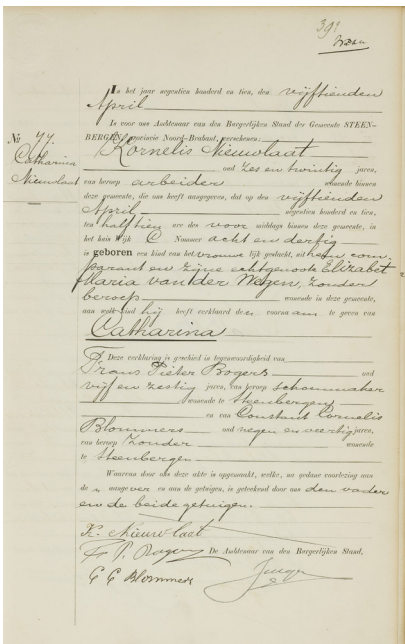 In het jaar negentien honderd en tien, den vijftienden
April
is voor ons Ambtenaar van den Burgerlijken Stand der Gemeente STEEN-
BERGEN, provincie Noord-Brabant, verschenen:
No 77.
Kornelis Nieuwlaat
Catharina
Nieuwlaat
oud zes en twintig jaren,
van beroep arbeider woonende binnen
deze gemeente, die ons heeft aangegeven, dat op den vijftienden
April negentien honderd en tien,
ten half tien ure des voor middags binnen deze gemeente, in
het huis Wijk C Nummer acht en dertig
is geboren een kind van het vrouwelijk geslacht, uit hem com-
parant en zijne echtgenoote Elizabet
Maria van der Wegen, zonder
beroep woonende in deze gemeente,
aan welk kind hij heeft verklaard den voornaam te geven van
Catharina
Deze verklaring is geschied in tegenwoordigheid van
Frans Pieter Bogers oud
vijf en zestig jaren, van beroep schoenmaker
woonende te Steenbergen
en van Constant Cornelis
Blommers oud negen en veertig jaren,
van beroep zonder woonende
te Steenbergen
Waarvan door ons deze akte is opgemaakt, welke, na gedane voorlezing aan
de aangever en aan de getuigen, is geteekend door ons den vader
en de beide getuigen.
K. Nieuwlaat
F. P. Bogers De Ambtenaar van den Burgerlijken Stand,
C C Blommers